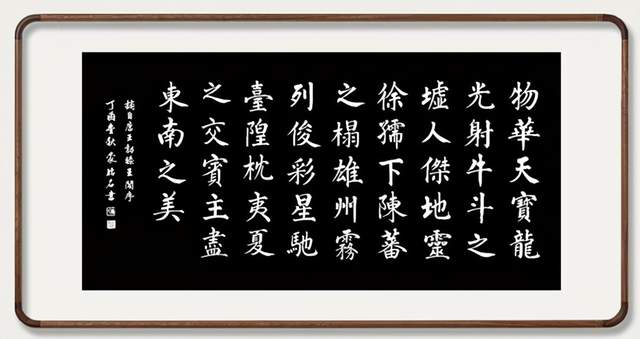 物華天寶龍
光射牛斗之
墟人傑地靈
徐孺下陳蕃
之榻雄州霧
列俊彩星馳
臺隍枕夷夏
之交賓主盡
東南之美
摘自唐王勃滕王閣序
丁酉 秋 書